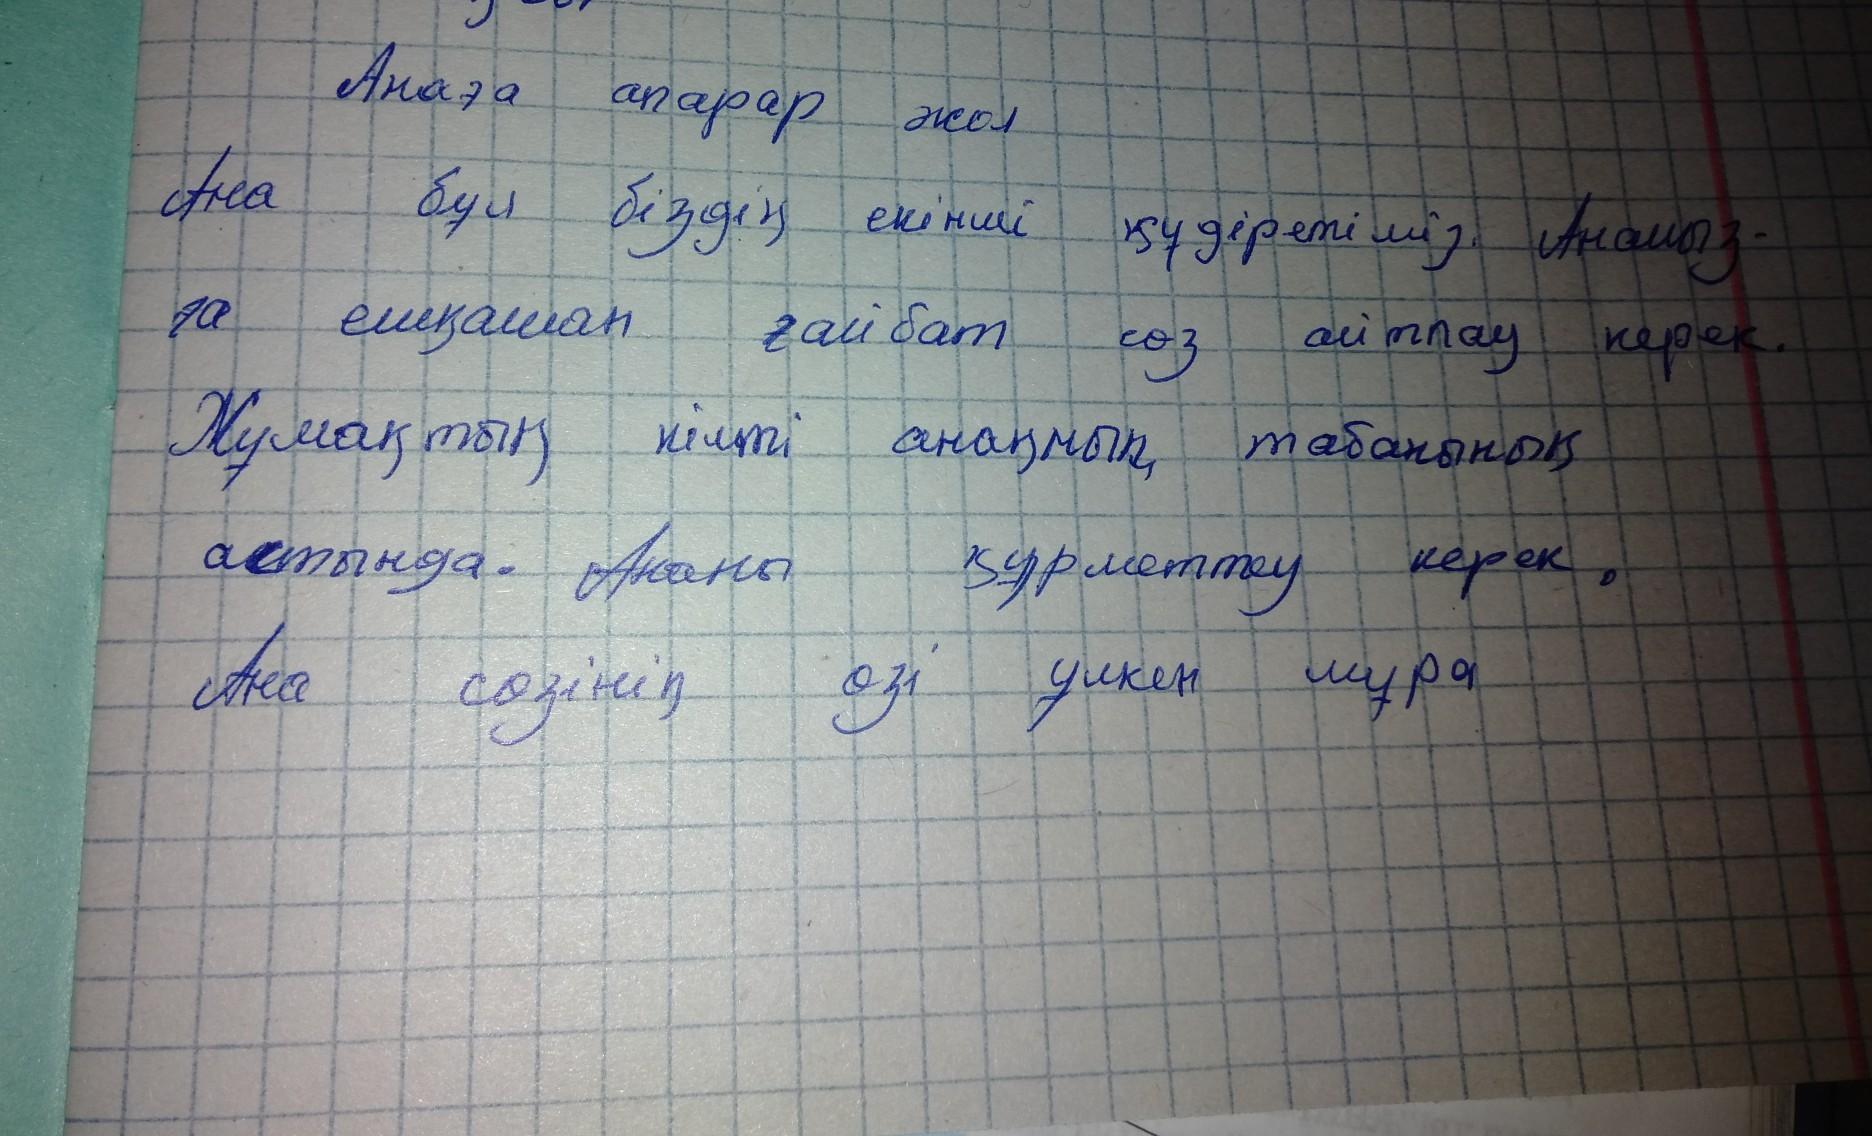 Анаға апарар жол
Ана бұл біздің екінші құдіретіміз. Анамыз-
ға ешқашан ғайбат сөз айтпау керек.
Жұмақтың кілті анаңның табанының
астында. Ананы құрметтеу керек.
Ана сөзінің өзі үлкен мұра